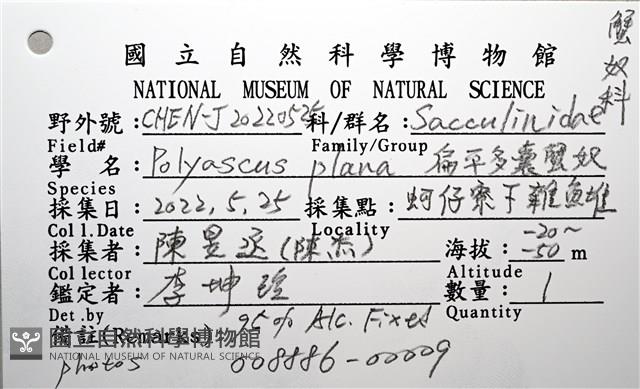 蟹奴科
國立自然科學博物館
NATIONAL MUSEUM OF NATURAL SCIENCE
野外號:CHEN-J 20220525 科/群名:Sacculinidae
Field# Family/Group
學 名:Polyascus plana 扁平多囊蟹奴
Species
採集日:2022,5,25 採集點:蚵仔寮下雜魚堆
Coll.Date Locality
採集者:陳昱丞(陳杰) 海拔:-20~-50 m
Collector Altitude
鑑定者:李坤瑄 數量:1
Det.by Quantity
備註(Remarks) 95% Alc. Fixed
國立自然科學博物館
NATIONAL MUSEUM OF NATURAL SCIENCE
photos 008886-00009